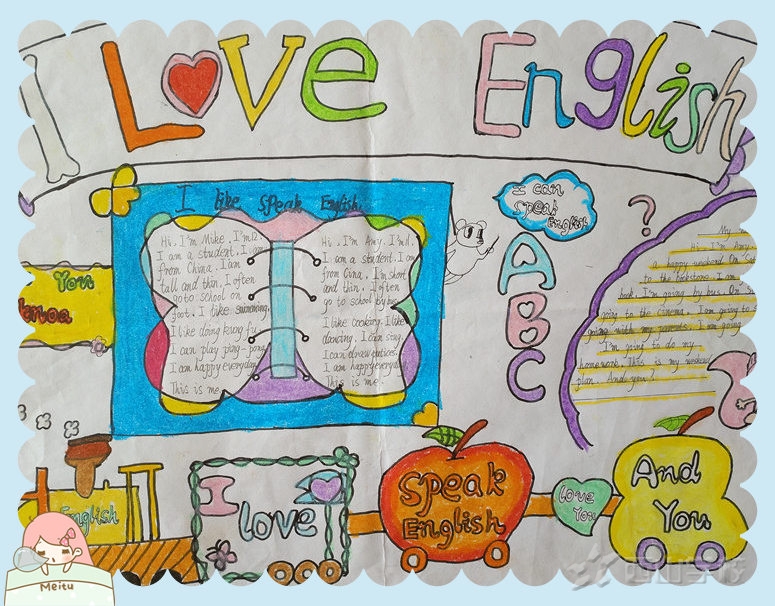 I Love English
I like Speak English
Hi, I'm Mike, I'm 12.
I am a student. I am
from China. I am
tall and thin. I often
goto school on
foot. I like swimming.
I like doing kung fu.
I can play ping-pong.
I am happy everyday.
This is me.
Hi, I'm Amy. I'm 11.
I am a student. I am
from Cina. I'm short
and thin. I often
go to school by bus.
I like cooking. I like
dancing. I can sing.
I can drew
I am happy everyday.
This is me.
I can
speak
English
?
A
B
C
My
Hi, I'm Amy
a happy weekend. On
to the bookstore. I am
book. I'm going by bus. On
going to the cinema. I am going to
going with my parents. I am going
I'm going to do my
homework. This is my weekend
plan. And you?
You
English
I
love
Speak
English
Love
You
And
You
Meitu